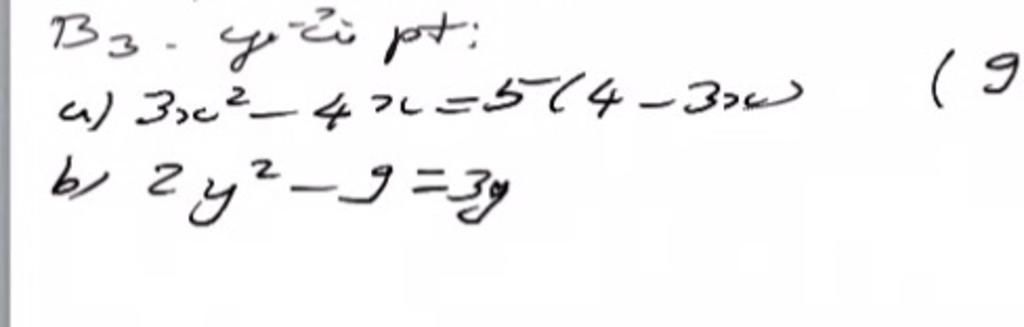 B3. giải pt:
a) 3x² - 4x = 5(4 - 3x) (9
b) 2y² - 9 = 3y